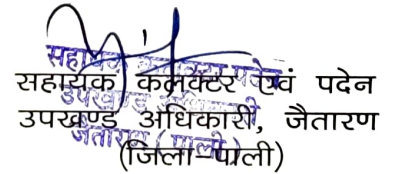 सहायक कलक्टर एवं पदेन
उपखण्ड अधिकारी, जैतारण
(जिला-पाली)
सहायक कलक्टर पदेन
उपखण्ड अधिकारी
जैतारण (पाली)